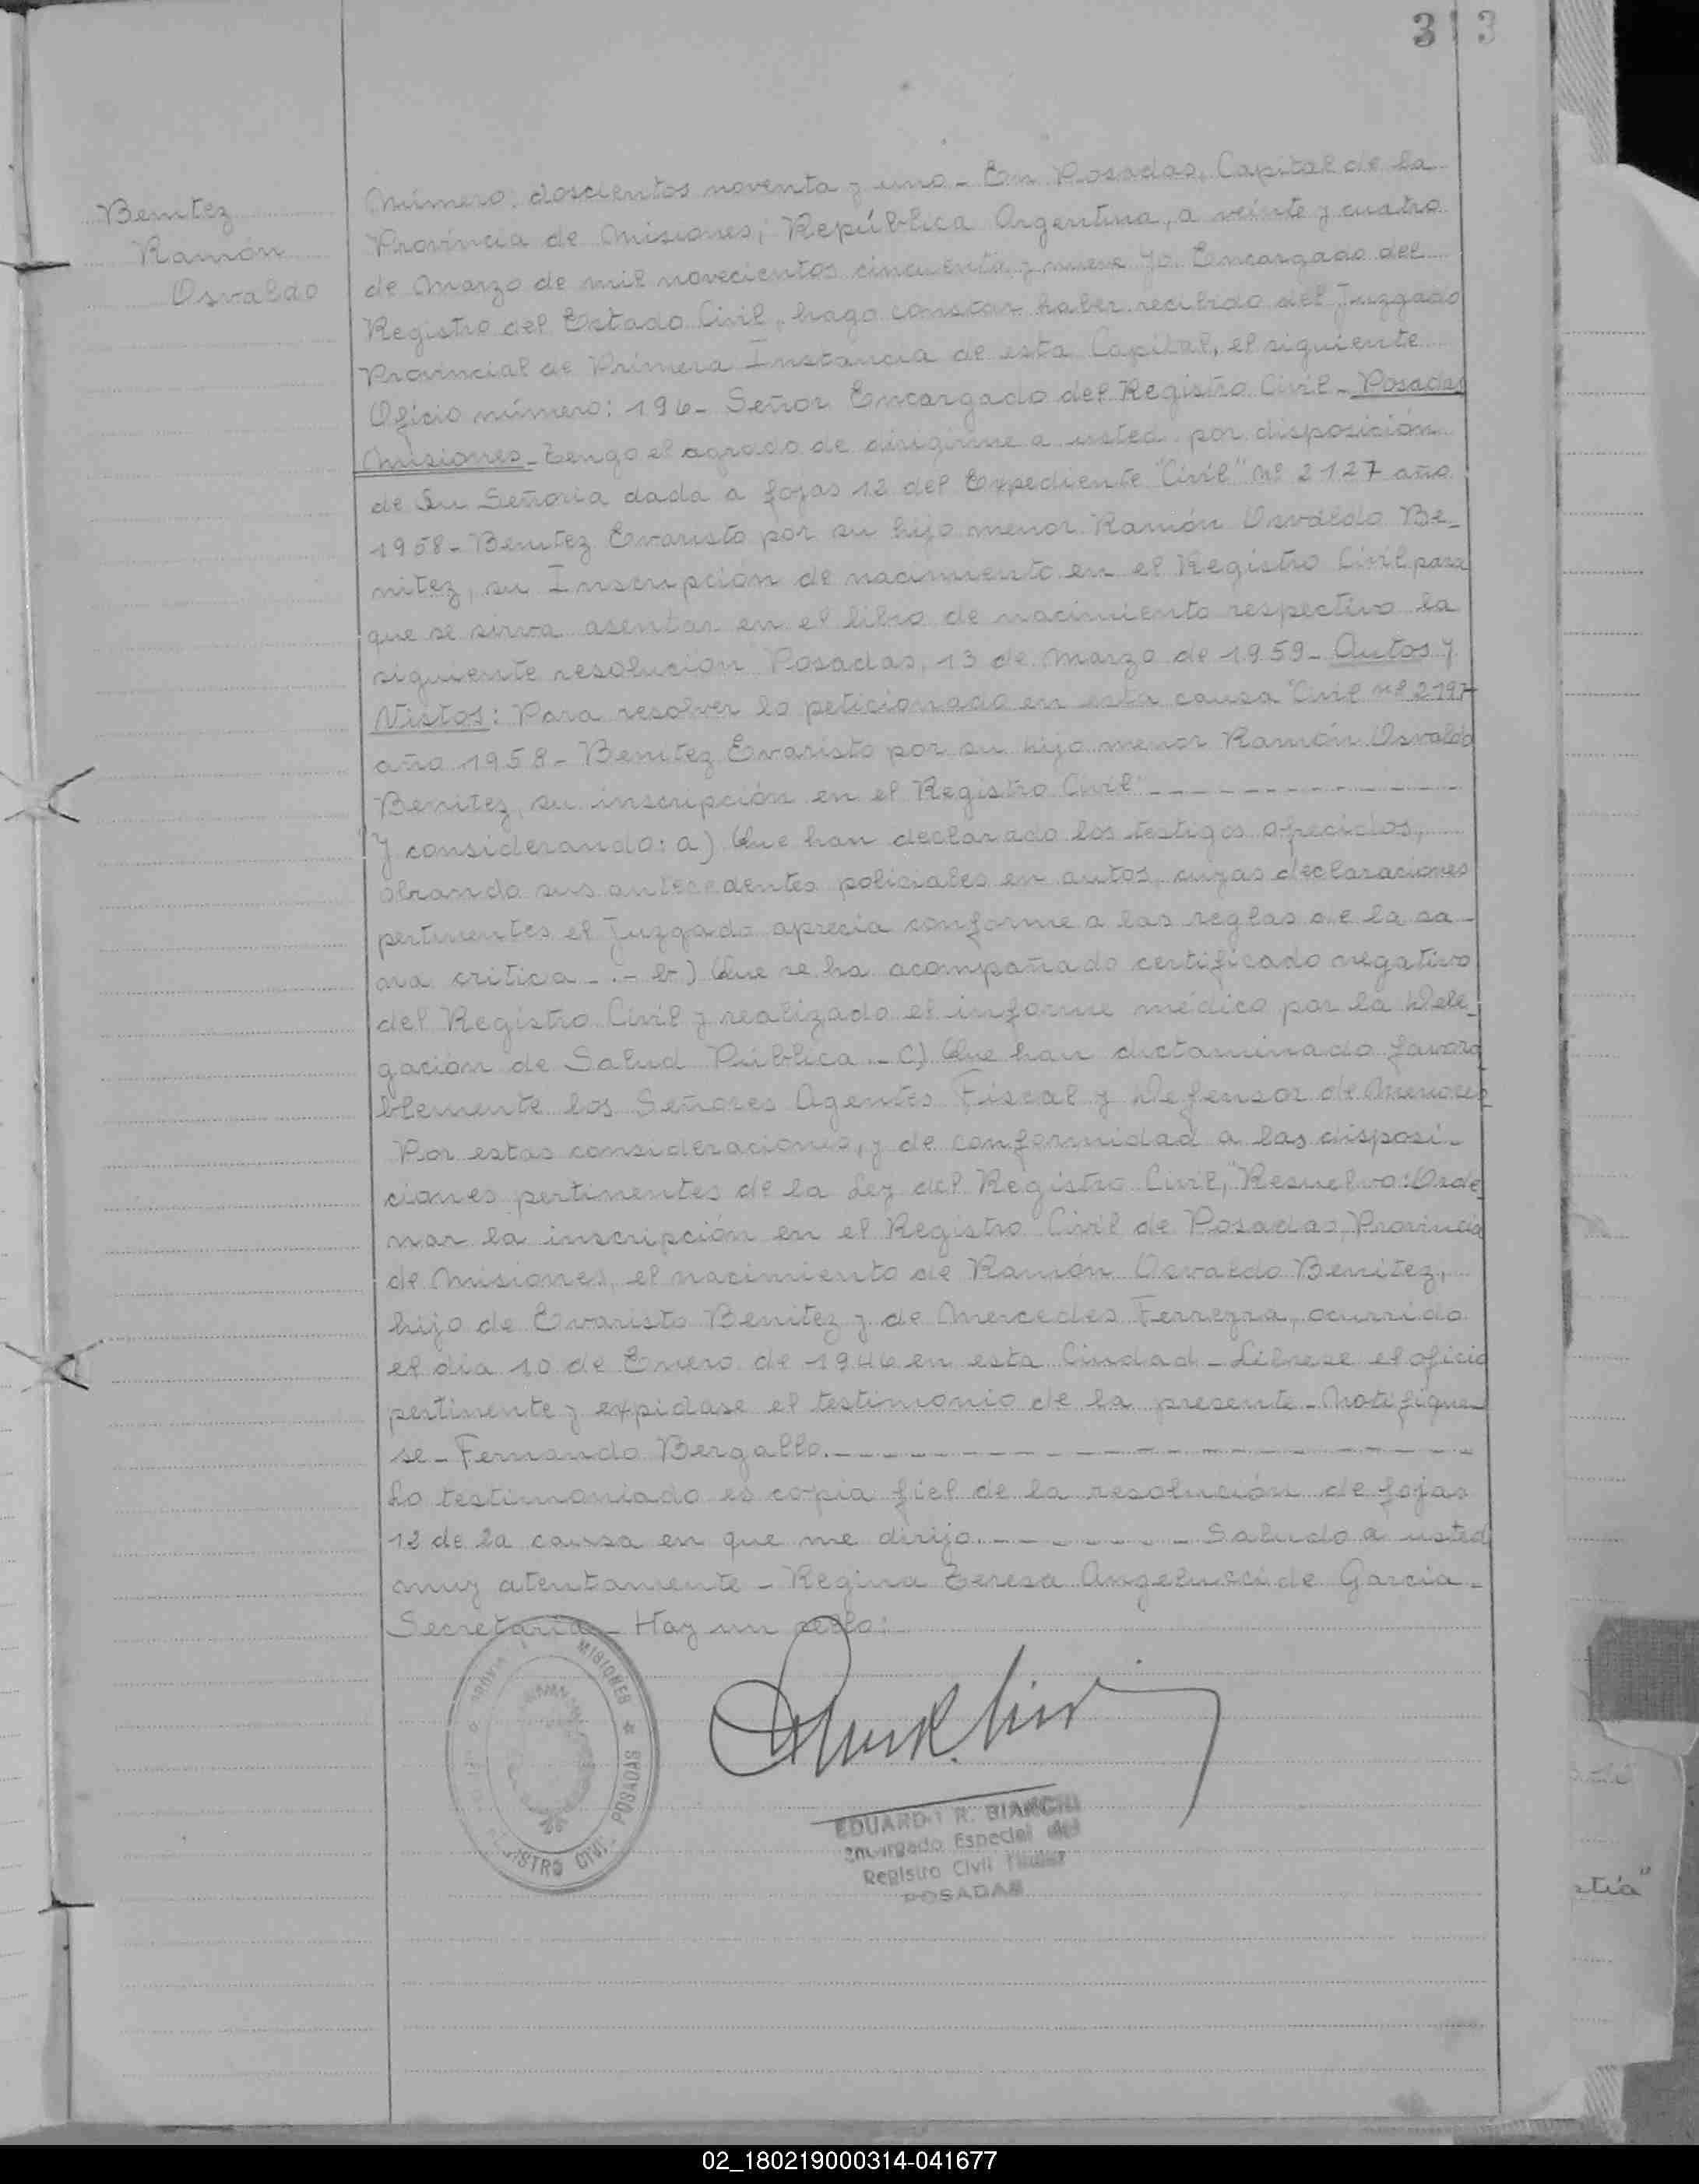 313
Benitez
Ramón
Osvaldo
Número doscientos noventa y uno - En Posadas, Capital de la
Provincia de Misiones, República Argentina, a veinte y cuatro
de Marzo de mil novecientos cincuenta y nueve yo Encargado del
Registro del Estado Civil, hago constar haber recibido del Juzgado
Provincial de Primera Instancia de esta Capital, el siguiente
Oficio número: 196- Señor Encargado del Registro Civil - Posadas
Misiones - Tengo el agrado de dirigirme a usted por disposición
de Su Señoria dada a fojas 12 del Expediente "Civil" nº 2127 año
1958- Benitez Evaristo por su hijo menor Ramón Osvaldo Be-
nitez, su Inscripción de nacimiento en el Registro Civil para
que se sirva asentar en el libro de nacimiento respectivo la
siguiente resolución Posadas, 13 de Marzo de 1959- Autos y
Vistos: Para resolver lo peticionado en esta causa "Civil nº 2197
año 1958- Benitez Evaristo por su hijo menor Ramón Osvaldo
Benitez, su inscripción en el Registro Civil" - - - - - - - - - - - -
Y considerando: a) Que han declarado los testigos ofrecidos,
obrando sus antecedentes policiales en autos, cuyas declaraciones
pertinentes el Juzgado aprecia conforme a las reglas de la sa-
na critica -.- b) Que se ha acompañado certificado negativo
del Registro Civil y realizado el informe médico por la Dele-
gación de Salud Pública.- C) Que han dictaminado favora
blemente los Señores Agentes Fiscal y Defensor de Menores
Por estas consideraciones, y de conformidad a las disposi-
ciones pertinentes de la Ley del Registro Civil, "Resuelvo: Orde
nar la inscripción en el Registro Civil de Posadas, Provincia
de Misiones, el nacimiento de Ramón Osvaldo Benitez,
hijo de Evaristo Benitez y de Mercedes Ferreyra, ocurrido
el dia 10 de Enero de 1946 en esta Ciudad - Librese el oficio
pertinente y expidase el testimonio de la presente - Notifique-
se - Fernando Bergallo. - - - - - - - - - - - - - - - - - -
Lo testimoniado es copia fiel de la resolución de fojas
12 de la causa en que me dirijo. - - - - - - - Saludo a usted
muy atentamente - Regina Teresa Angelucci de Garcia -
Secretaria - Hay un sello:
MISIONES * POSADAS
REGISTRO CIVIL
EDUARDO R. BIANCHI
Encargado Especial del
Registro Civil Titular
POSADAS
stia"
02_180219000314-041677